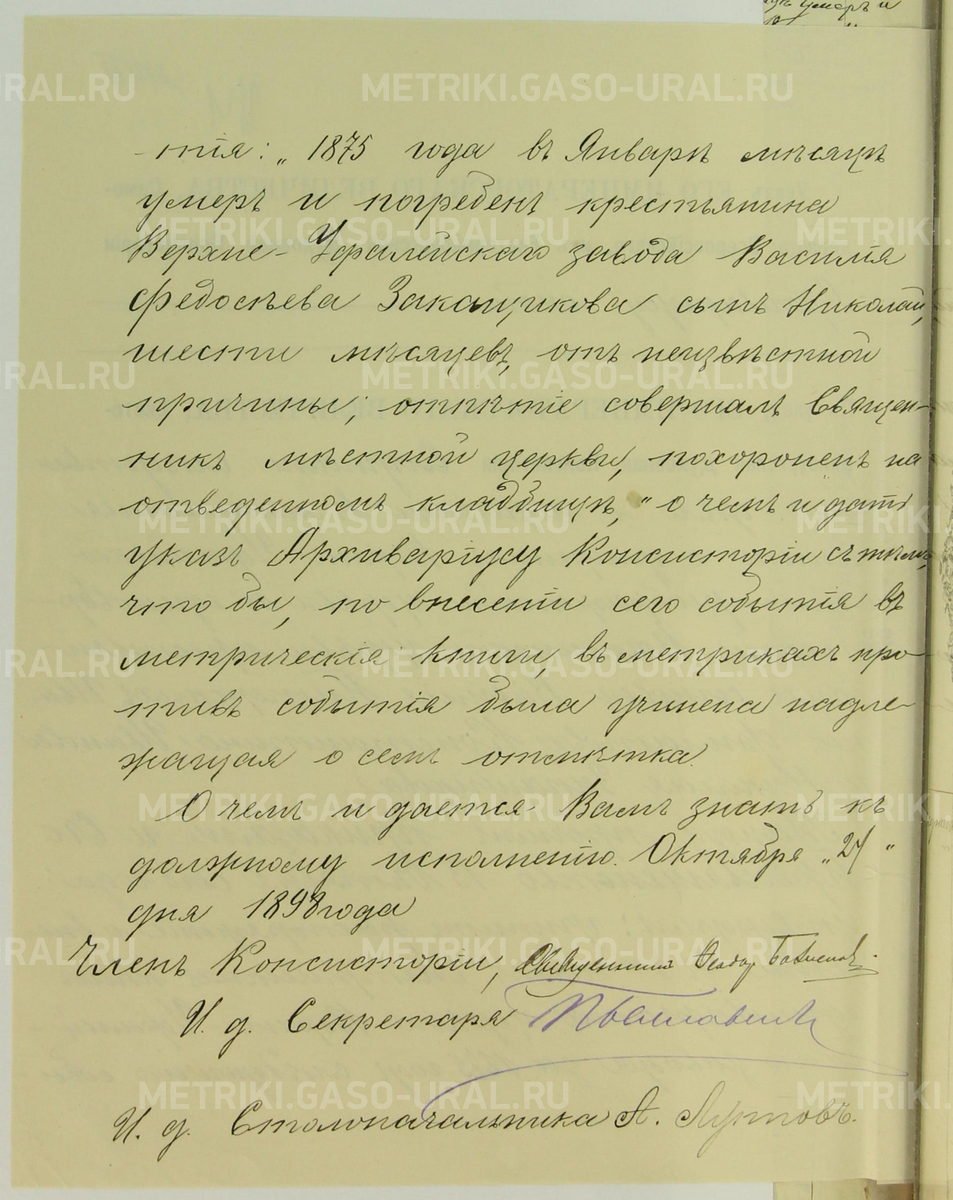 -тія: „1875 года въ Январѣ мѣсяцѣ
умеръ и погребенъ крестьянина
Верхне-Уфалейскаго завода Василія
Федосѣева Закащикова сынъ Николай,
шести мѣсяцевъ, отъ неизвѣстной
причины; отпѣтіе совершалъ Священ-
никъ мѣстной церкви, похороненъ на
отведенномъ кладбищѣ," о чемъ и дать
указъ Архиваріусу Консисторіи съ тѣмъ,
что бы, по внесеніи сего событія въ
метрическія книги, въ метрикахъ про-
тивъ событія была учинена надле-
жащая о семъ отмѣтка.
О чемъ и дается Вамъ знать къ
должному исполненію. Октября „24"
дня 1898 года
Членъ Консисторіи, Священникъ Феодор
И. д. Секретаря
И. д. Столоначальника А. Лутовъ.
METRIKI.GASO-URAL.RU